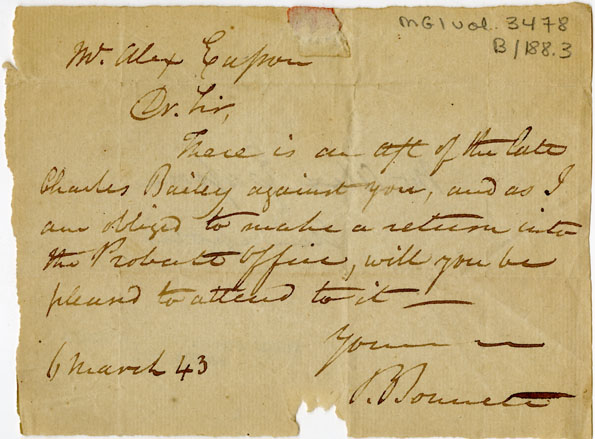 MG1 vol. 3478
B/188.3
Mr. Alex Easson
Dr. Sir,
There is an act of the late
Charles Bailey against you, and as I
am obliged to make a return into
the Probate Office, will you be
pleased to attend to it —
Yours —
6 March 43
P. Bonnett